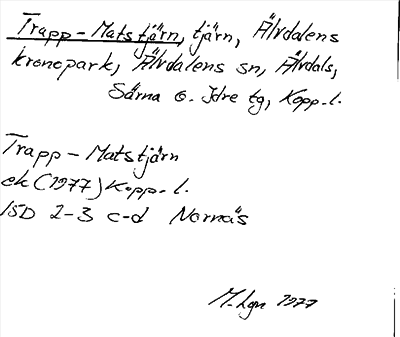 Trapp-Matstjärn, tjärn, Älvdalens
kronopark, Älvdalens sn, Älvdals,
Särna o. Idre tg, Kopp-l.
Trapp-Matstjärn
ek (1977) Kopp-l.
15D 2-3 c-d Nornäs
M-Lgn 1977